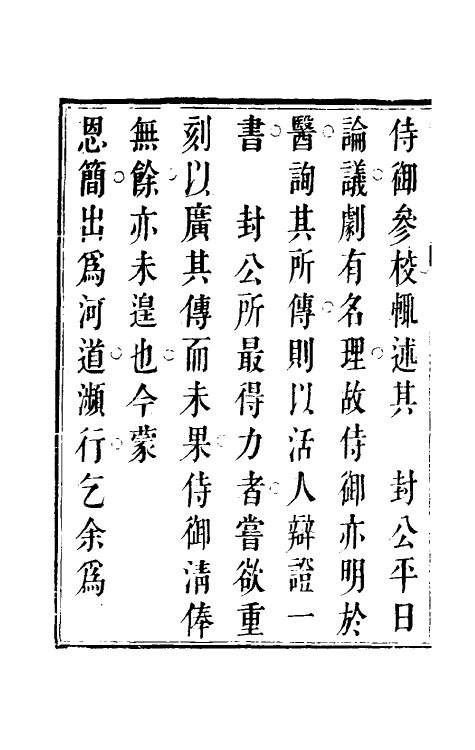 侍御參校輒述其　封公平日
論議劇有名理故侍御亦明於
醫詢其所傳則以活人辯證一
書　封公所最得力者嘗欲重
刻以廣其傳而未果侍御清俸
無餘亦未遑也今蒙
恩簡出為河道瀕行乞余為